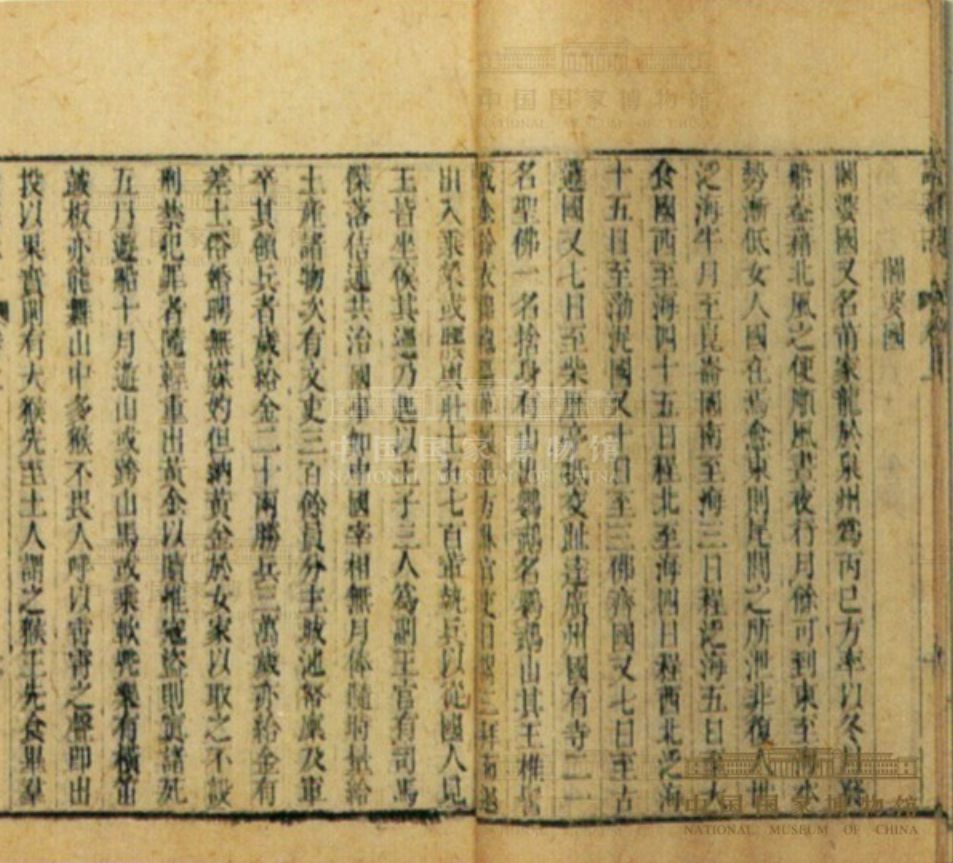 闍婆國
闍婆國又名莆家龍於泉州為丙巳方率以冬月發
船葢藉北風之便順風晝夜行月餘可到東至海水
勢漸低女人國在焉愈東則尾閭之所泄非復人世
泛海半月至崑崙國南至海三日程泛海五日至大
食國西至海四十五日程北至海四日程西北泛海
十五日至渤泥國又十日至三佛齊國又七日至古
邏國又七日至柴歷亭抵交趾達廣州國有寺二一
名聖佛一名捨身有山出鸚鵡名鸚鵡山其王椎髻
戴金鈴衣錦袍躡革履坐方牀官吏日謁三拜而退
出入乘象或腰輿壯士五七百輩執兵以從國人見
王皆坐俟其過乃起以王子三人為副王官有司馬
傑落佶連共治國事如中國宰相無月俸隨時量給
土產諸物次有文吏三百餘員分主城池帑廩及軍
卒其領兵者歲給金二十兩勝兵三萬歲亦給金有
差土俗婚聘無媒妁但納黃金於女家以取之不設
刑禁犯罪者隨輕重出黃金以贖惟寇盜則寘諸死
五月遊船十月遊山或跨山馬或乘軟兜樂有橫笛
鼓板亦能舞山中多猴不畏人呼以霄霄之聲即出
投以果實則有大猴先至土人謂之猴王先食畢羣
中国国家博物馆
NATIONAL MUSEUM OF CHINA
中国国家博物馆
NATIONAL MUSEUM OF CHINA
中国国家博物馆
NATIONAL MUSEUM OF CHINA